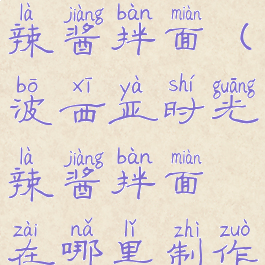 là jiàng bàn miàn
辣酱拌面（
bō xī yà shí guāng
波西亚时光
là jiàng bàn miàn
辣酱拌面
zài nǎ lǐ zhì zuò
在哪里制作